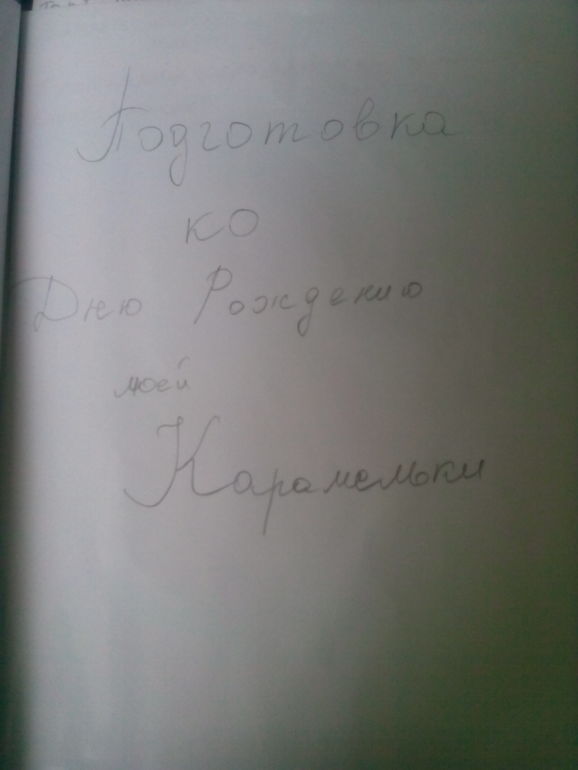 Подготовка
ко
Дню Рождению
моей
Карамельки